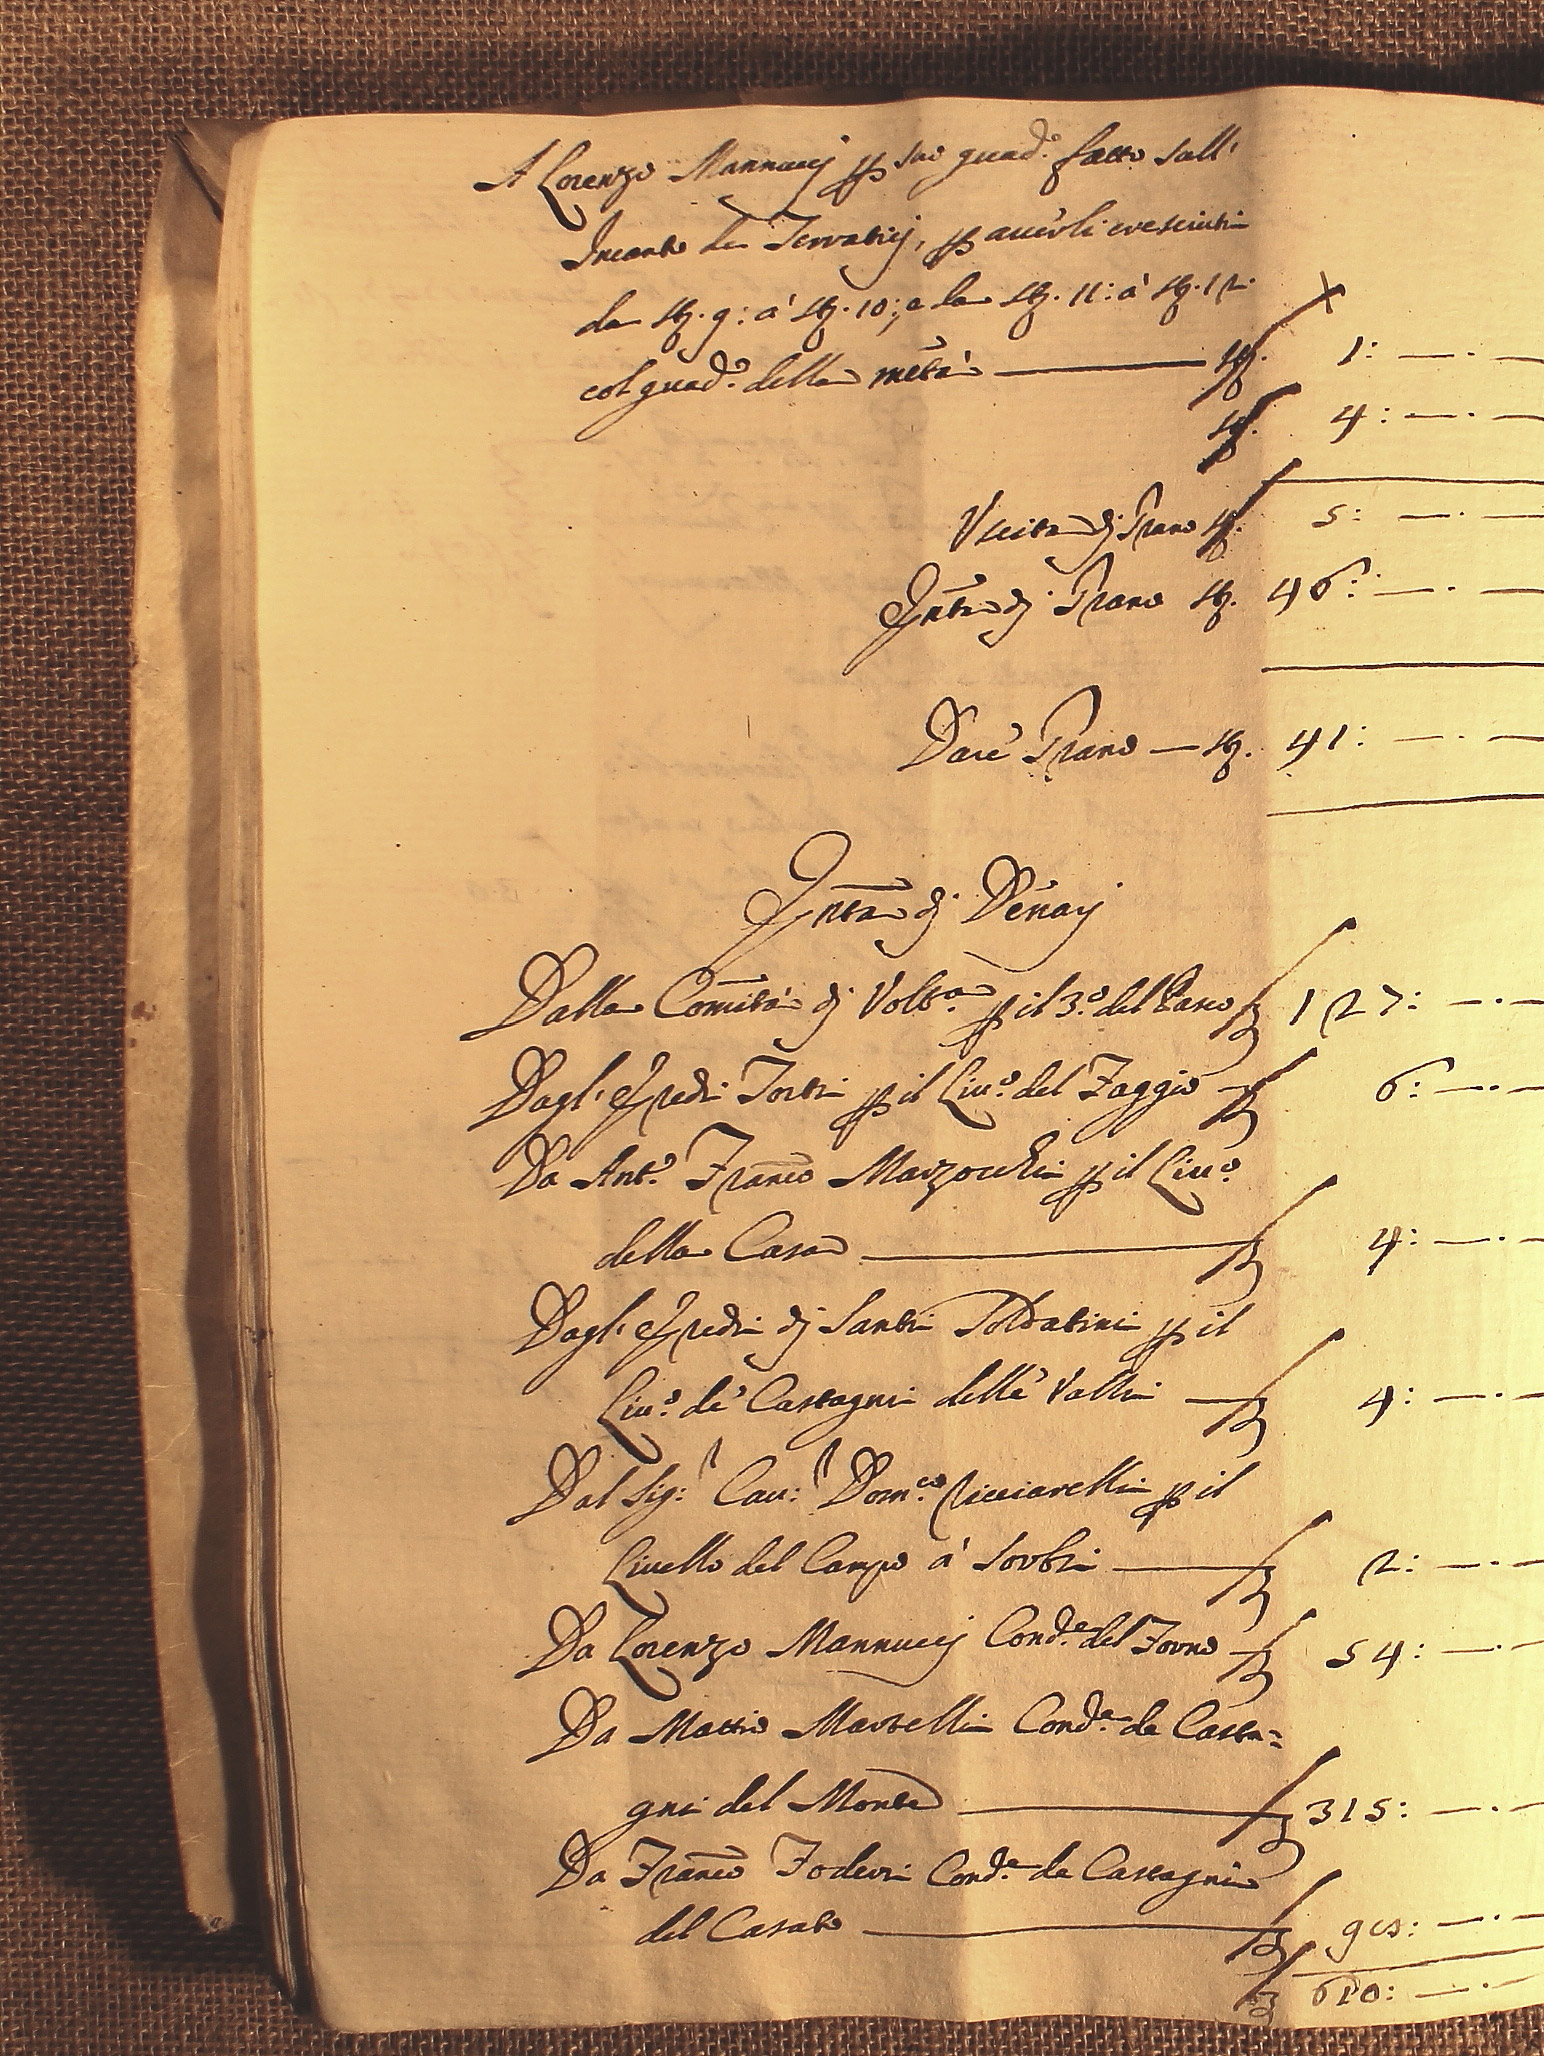 A Lorenzo Mannucij p suo guad.º fatto sull'
Incanto de Terratici, p auerli cresciuti
da st. 9: à st. 10; e da st. 11: à st. 12
col guad.º della metà — st. 1: — . —
st. 4: — . —
Vscita dj Grano st. 5: — . —
Entra dj Grano st. 46: — . —
Dare Grano — st. 41: — . —
Entra dj Denarj
Dalla Comità dj Volt.ª p il 3.º del Pane 127: — . —
Dagl' Eredi Torti p il Liu.º del Faggio — 6: — . —
Da Ant.º Franco Marzocchi p il Liu.º
della Casa — 4: — . —
Dagl' Eredi dj Santi Soldatini p il
Liu.º de Castagni delle Valli — 4: — . —
Dal Sig:r Cau:r Dom.co Ricciarelli p il
Liuello del Campo à Sorbi — 2: — . —
Da Lorenzo Mannucij Cond.e del Forno — 54: — . —
Da Mattio Martelli Cond.e de Casta=
gni del Monte — 315: — . —
Da Franco Foderi Cond.e de Castagni
del Casato — : — . —
: — . —